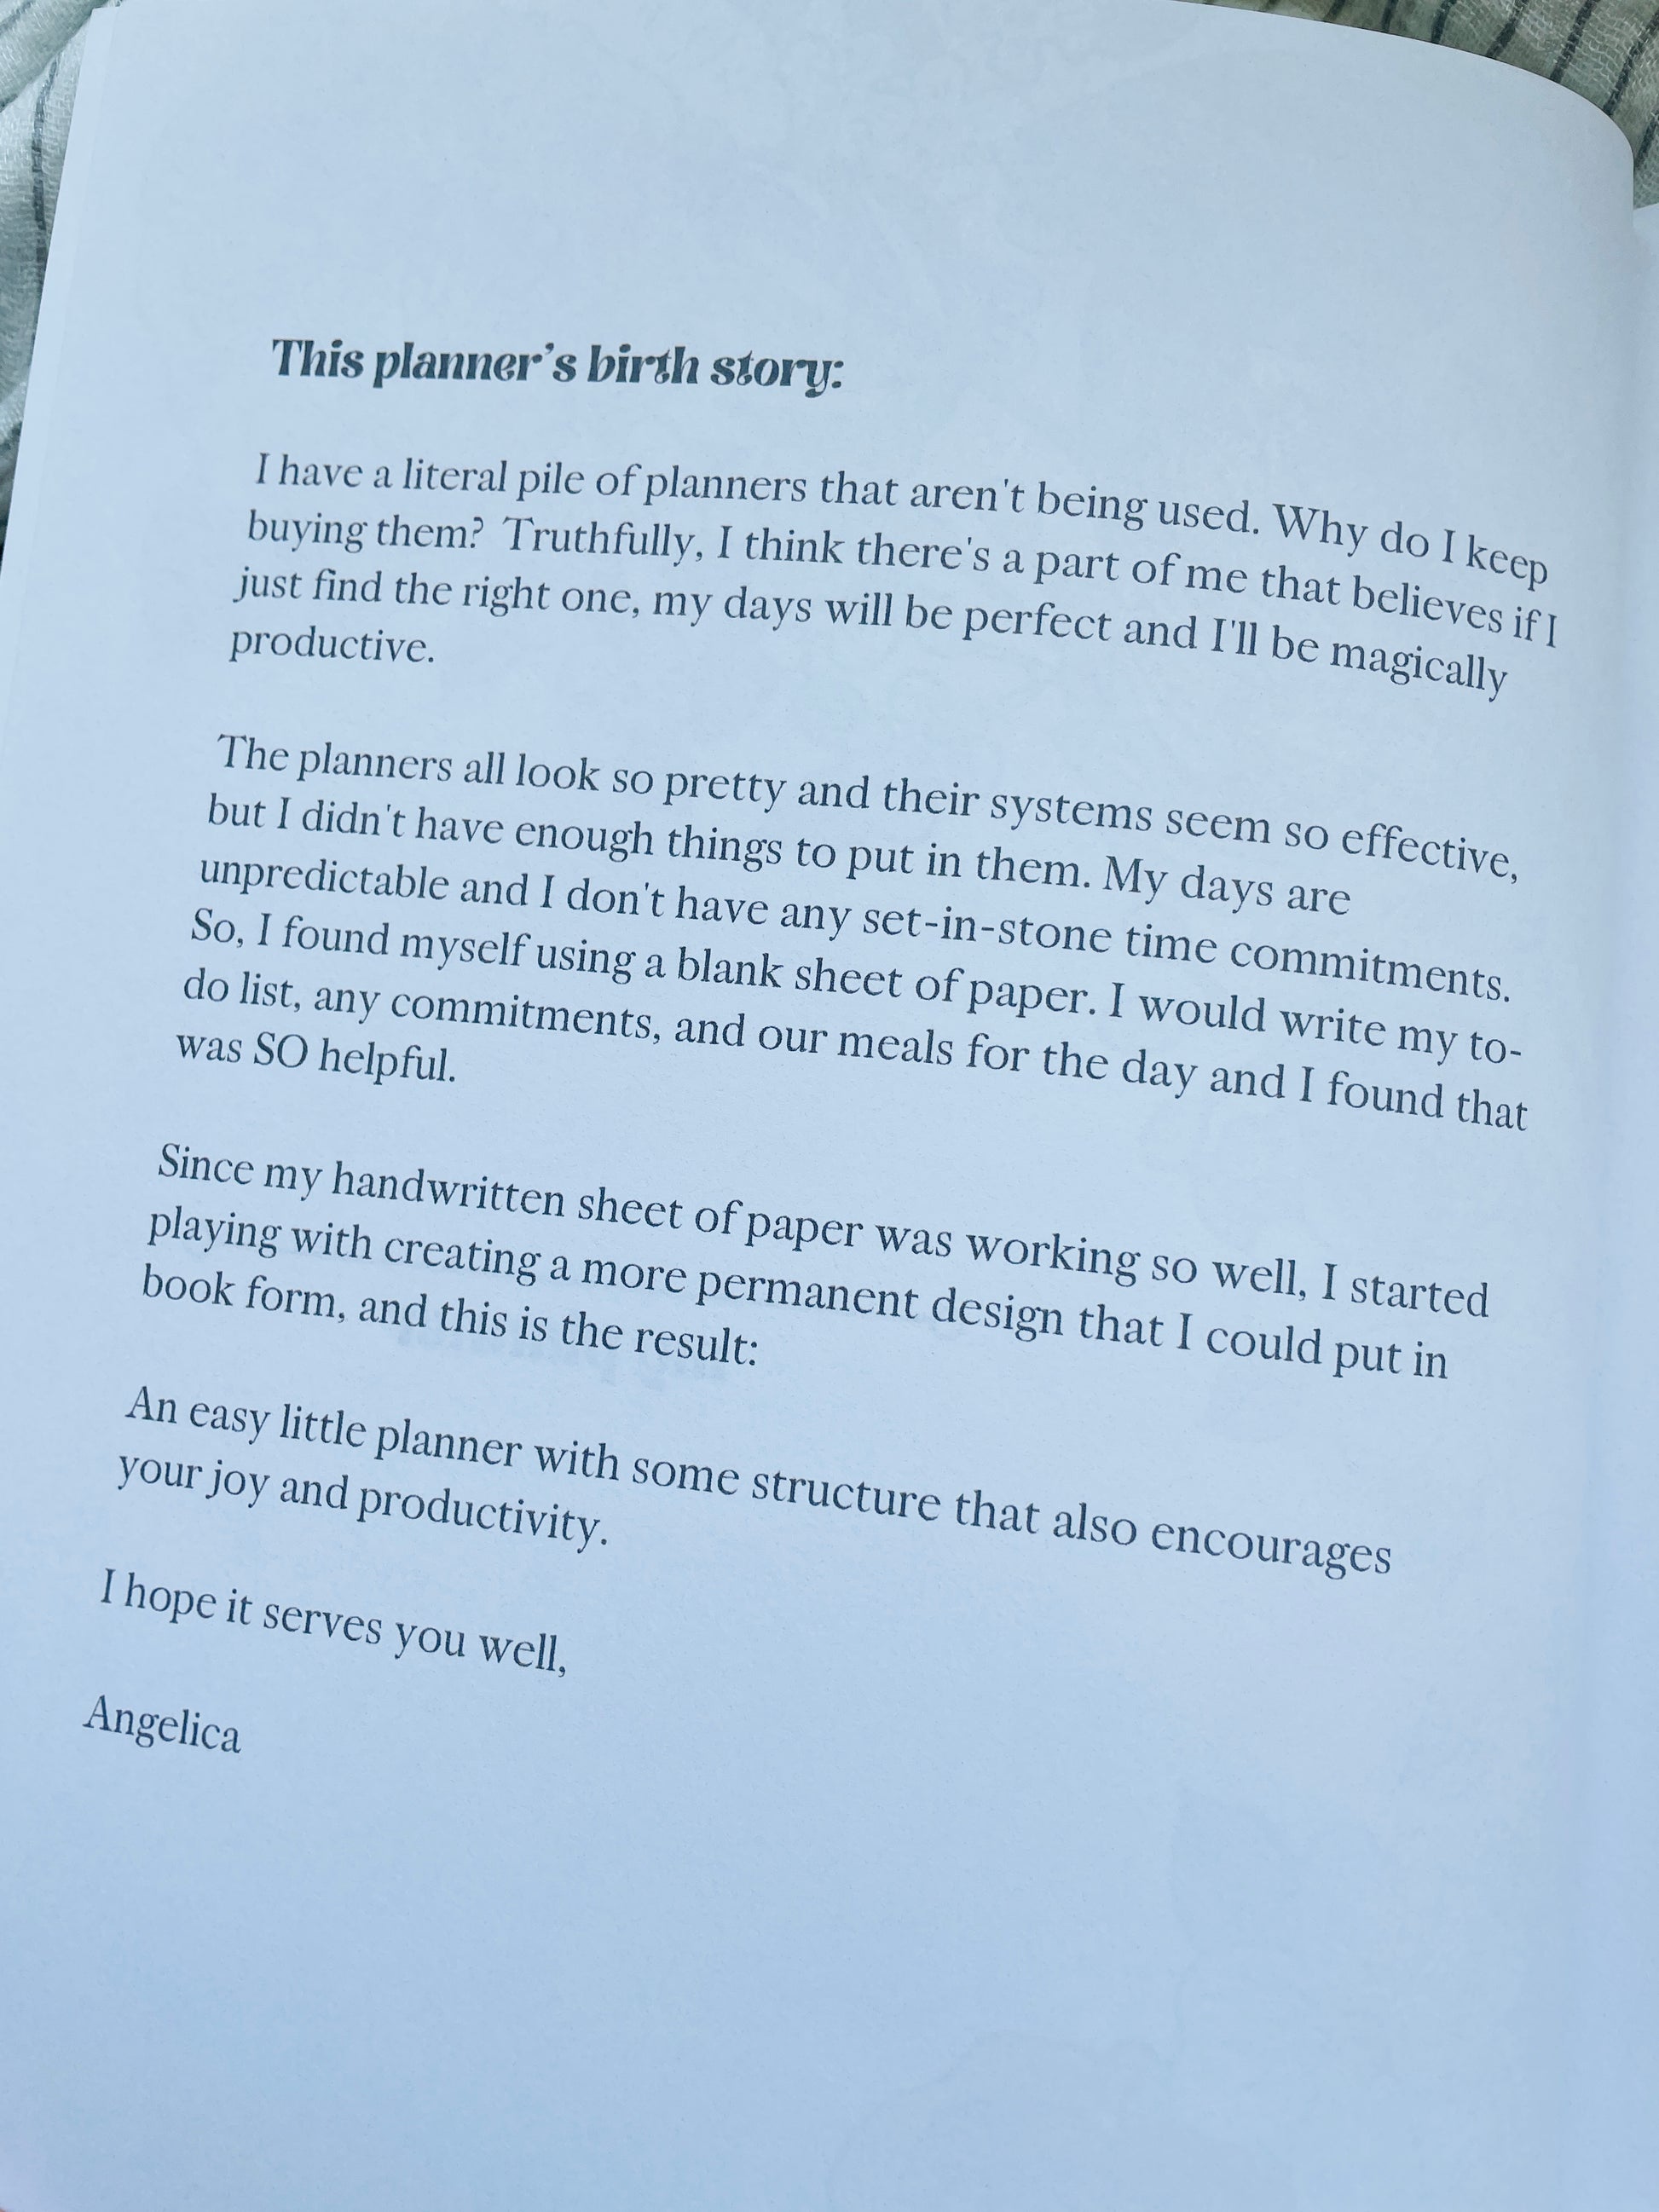 This planner’s birth story:
I have a literal pile of planners that aren't being used. Why do I keep
buying them?  Truthfully, I think there's a part of me that believes if I
just find the right one, my days will be perfect and I'll be magically
productive.
The planners all look so pretty and their systems seem so effective,
but I didn't have enough things to put in them. My days are
unpredictable and I don't have any set-in-stone time commitments.
So, I found myself using a blank sheet of paper. I would write my to-
do list, any commitments, and our meals for the day and I found that
was SO helpful.
Since my handwritten sheet of paper was working so well, I started
playing with creating a more permanent design that I could put in
book form, and this is the result:
An easy little planner with some structure that also encourages
your joy and productivity.
I hope it serves you well,
Angelica